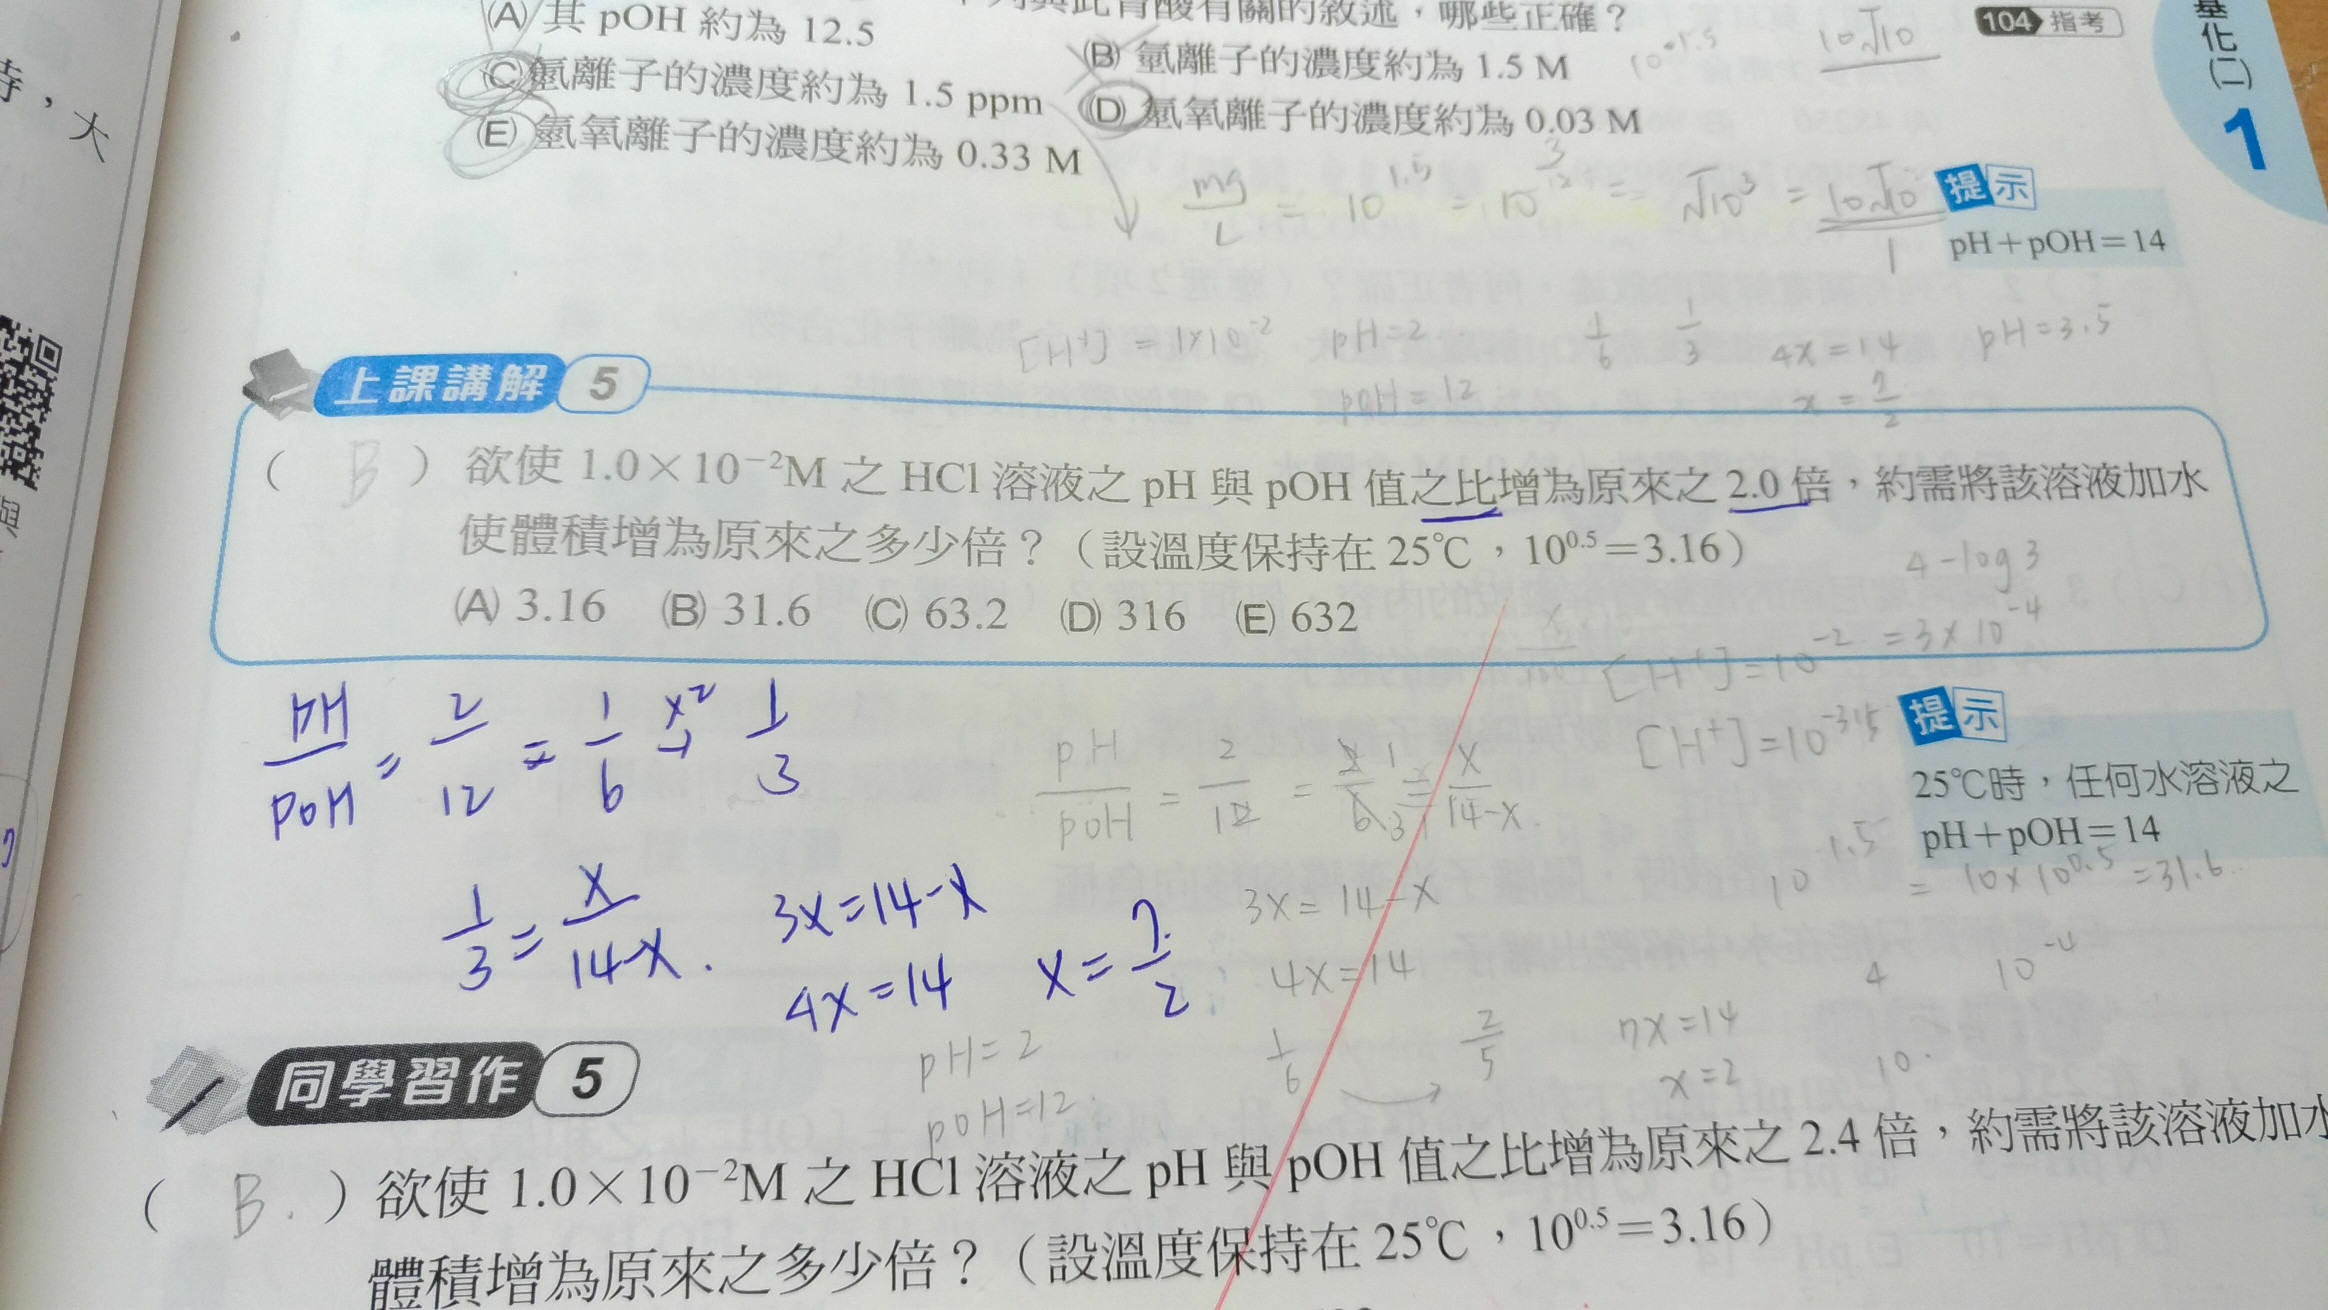 有關的敘述,哪些正確?
104 指考
(A) 其 pOH 約為 12.5
(B) 氫離子的濃度約為 1.5 M
(C) 氫離子的濃度約為 1.5 ppm
(D) 氫氧離子的濃度約為 0.03 M
(E) 氫氧離子的濃度約為 0.33 M
10√10
mg/L = 10^1.5 = = √10³ = 10√10
1
提示
pH+pOH=14
基化(二)
1
時,大
與
[H⁺] = 1×10⁻² pH=2
pOH=12
1/6 1/3 4x=14 pH=3.5
x=7/2
上課講解 5
( B ) 欲使 1.0×10⁻²M 之 HCl 溶液之 pH 與 pOH 值之比增為原來之 2.0 倍,約需將該溶液加水
使體積增為原來之多少倍?(設溫度保持在 25℃,10^0.5=3.16)
(A) 3.16 (B) 31.6 (C) 63.2 (D) 316 (E) 632
4-log3
[H⁺]=10⁻² =3×10⁻⁴
[H⁺]=10^-3.5
提示
25℃時,任何水溶液之
pH+pOH=14
pH/pOH = 2/12 = 1/6 ×2→ 1/3
pH/pOH = 2/12 = = x/14-x
10^1.5 = 10×10^0.5 =31.6
1/3 = x/14-x . 3x=14-x
4x=14 x=7/2
3x=14-x
4x=14
4 10⁻⁴
pH=2
pOH=12
1/6 2/5 7x=14
x=2
10
同學習作 5
( B. ) 欲使 1.0×10⁻²M 之 HCl 溶液之 pH 與 pOH 值之比增為原來之 2.4 倍,約需將該溶液加水
體積增為原來之多少倍?(設溫度保持在 25℃,10^0.5=3.16)